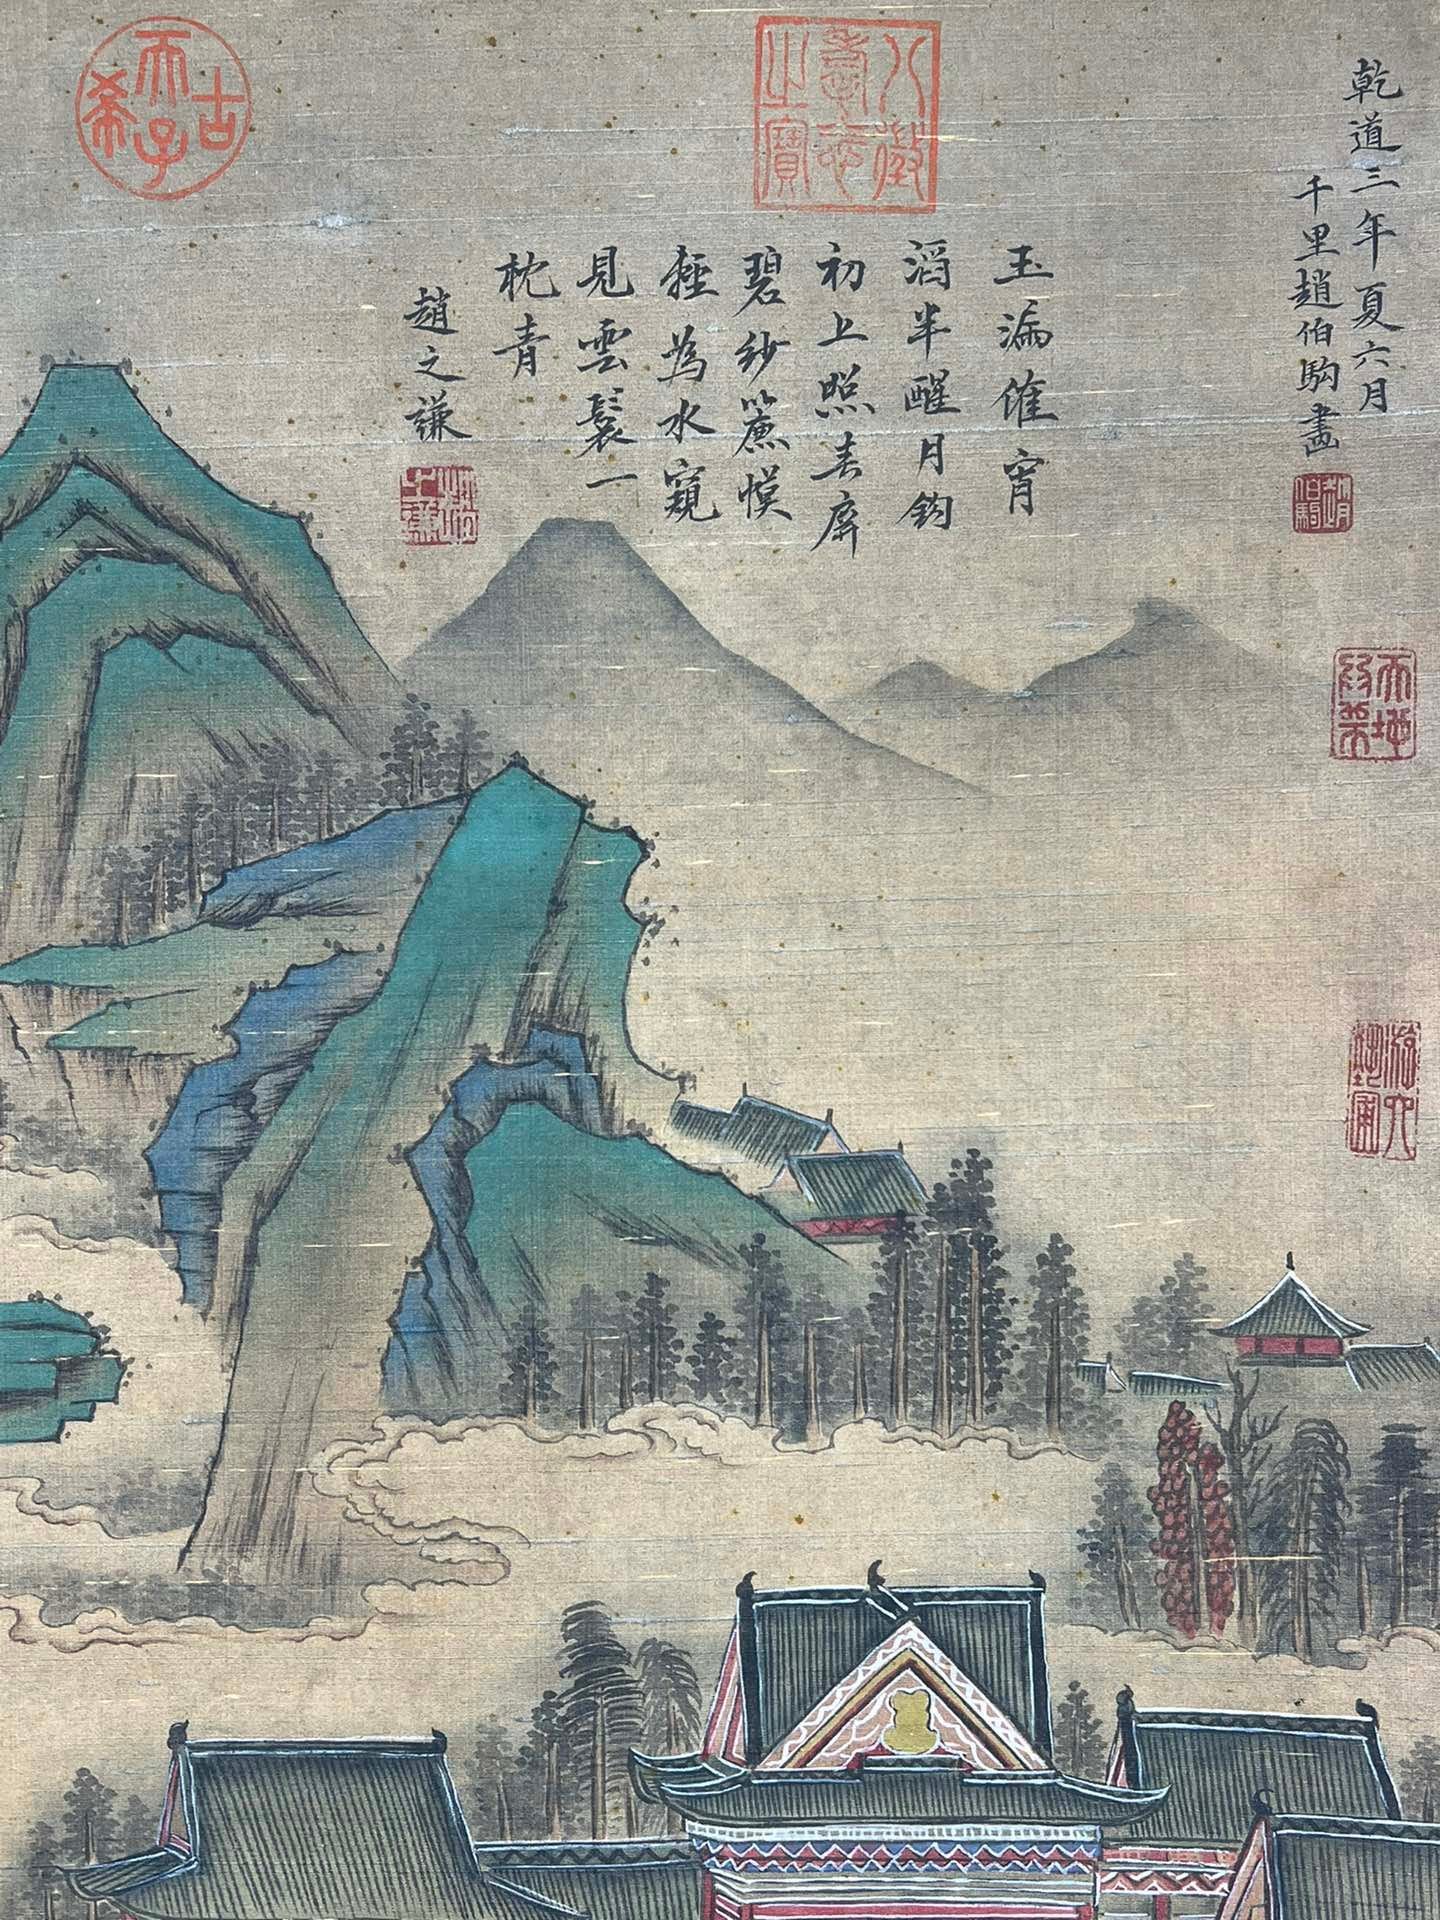 乾道三年夏六月
千里趙伯駒畫
趙伯駒
八徵耄念之寶
玉漏催宵
滔半醒月鈎
初上照春屏
碧紗簾幙
輕為水窺
見雲鬟一
枕青
趙之謙
趙之謙
古希天子